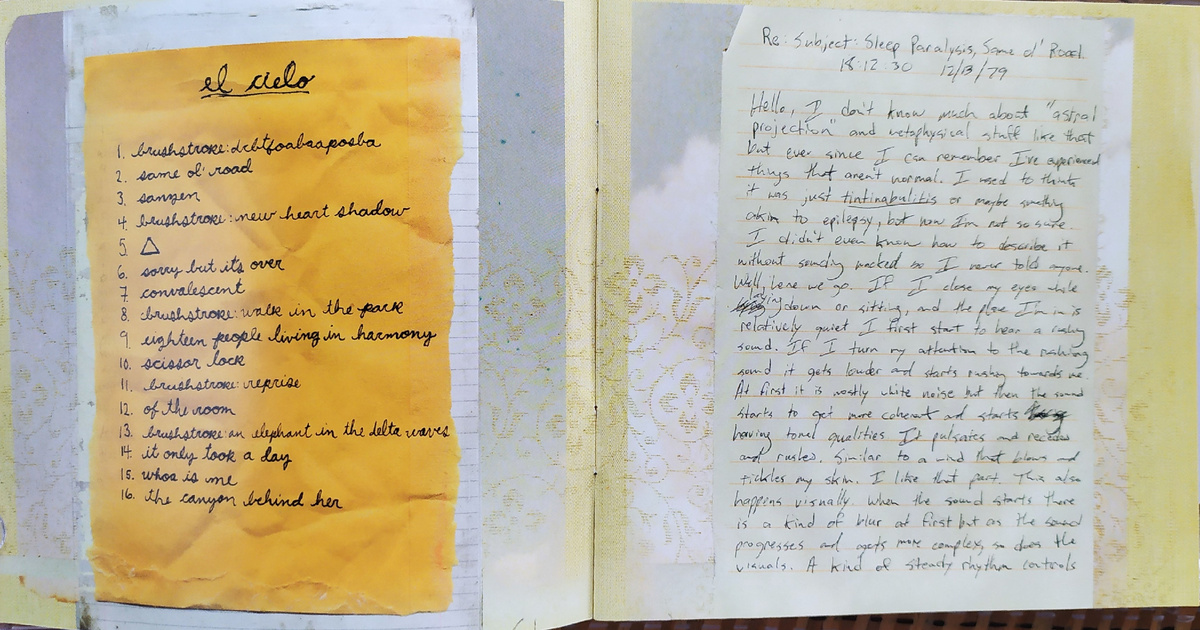 el cielo
1. brushstroke: dcbtfoabaaposba
2. same ol' road
3. sanzen
4. brushstroke: new heart shadow
5. △
6. sorry but it's over
7. convalescent
8. brushstroke: walk in the park
9. eighteen people living in harmony
10. scissor lock
11. brushstroke: reprise
12. of the room
13. brushstroke: an elephant in the delta waves
14. it only took a day
15. whoa is me
16. the canyon behind her
Re: Subject: Sleep Paralysis, Same ol' Road
18:12:30 12/13/79
Hello, I don't know much about "astral
projection" and metaphysical stuff like that
but ever since I can remember I've experienced
things that aren't normal. I used to think
it was just tintinabulitis or maybe something
akin to epilepsy, but now I'm not so sure.
I didn't even know how to describe it
without sounding wacked so I never told anyone.
Well, here we go. If I close my eyes while
lying down or sitting, and the place I'm in is
relatively quiet I first start to hear a rushing
sound. If I turn my attention to the rushing
sound it gets louder and starts rushing towards me.
At first it is mostly white noise but then the sound
starts to get more coherent and starts
having tonal qualities. It pulsates and recedes
and rushes. Similar to a wind that blows and
tickles my skin. I like that part. This also
happens visually. When the sound starts there
is a kind of blur at first but as the sound
progresses and gets more complex, so does the
visuals. A kind of steady rhythm controls